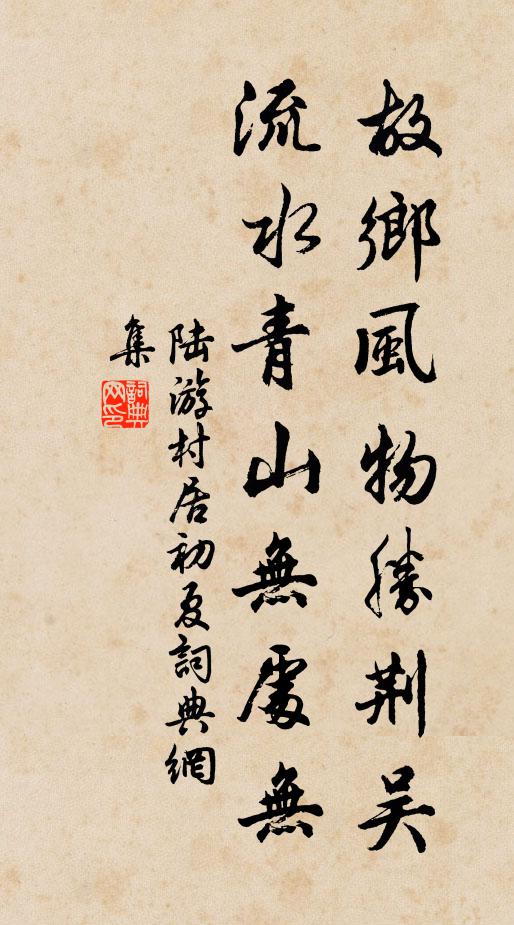 故鄉風物勝荆吴
流水青山無處無
陆游村居初夏詞典網
集
詞典網印